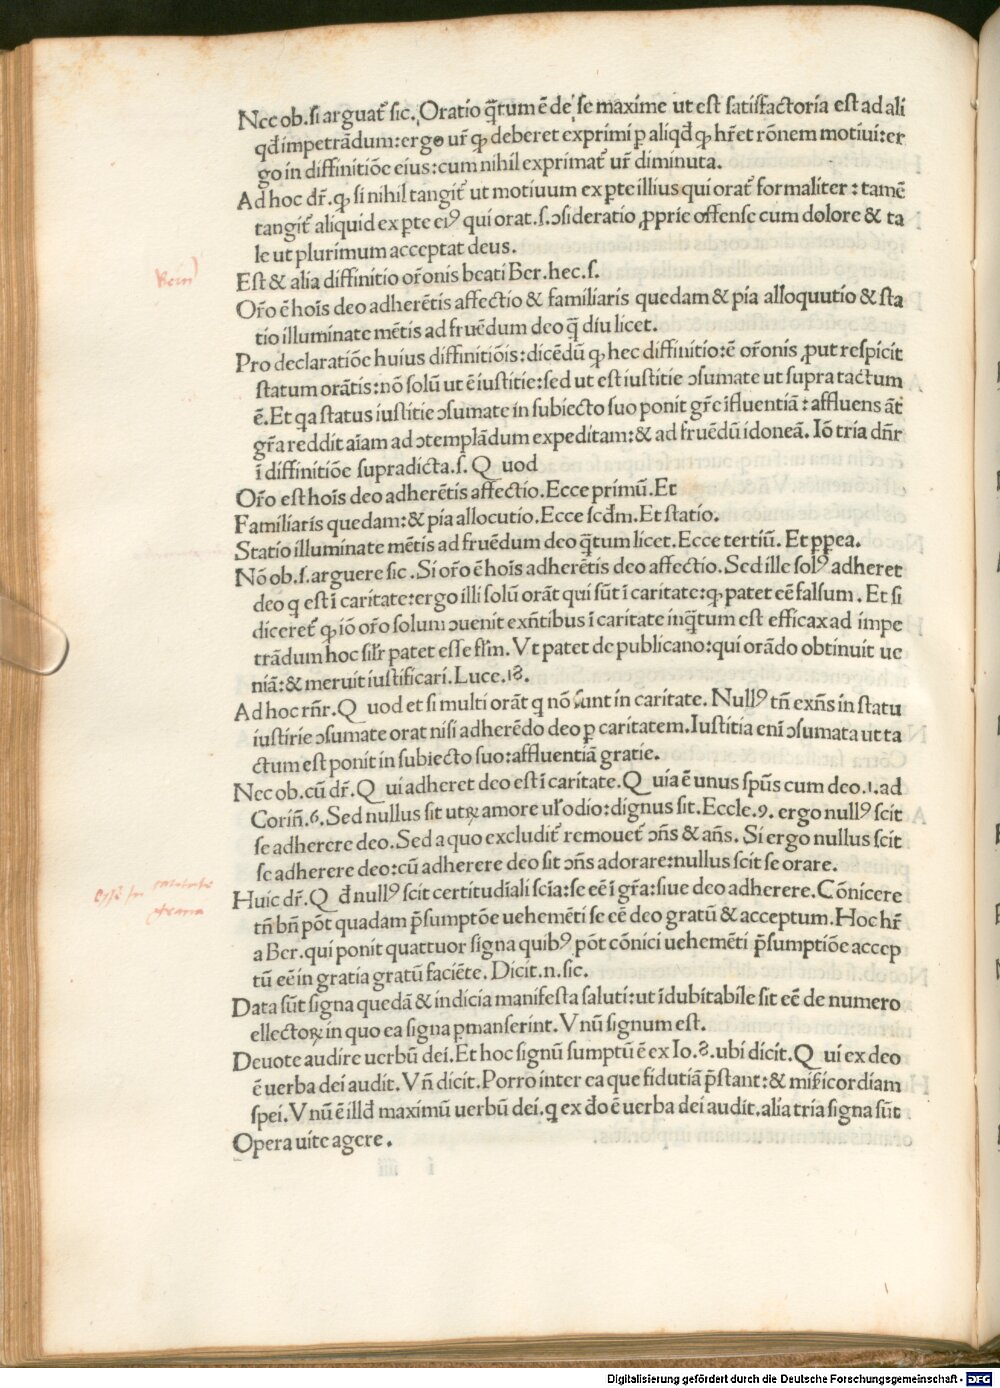 Nec ob. si arguat᷑ sic. Oratio q̃tum ē de se maxime ut est satisfactoria est ad ali
qđ impetrādum: ergo ur̃ ꝙ deberet exprimi ꝑ aliqđ ꝙ hr̃et rõnem motiui: er
go in diffinitiõe eius: cum nihil exprimat᷑ ur̃ diminuta.
Ad hoc dr̃. ꝙ si nihil tangit᷑ ut motiuum ex ꝑte illius qui orat᷑ formaliter: tamē
tangit᷑ aliquid ex ꝑte eiꝰ qui orat. s. ɔsideratio ꝓprie offense cum dolore & ta
le ut plurimum acceptat deus.
Est & alia diffinitio or̃onis beati Ber. hec. s.
Or̃o ē hoīs deo adherētis affectio & familiaris quedam & pia alloquutio & sta
tio illuminate mētis ad fruēdum deo q̃ diu licet.
Pro declaratiõe huius diffinitiõis: dicēdū ꝙ hec diffinitio: ē or̃onis ꝓut respicit
statum orātis: nõ solū ut ē iustitie: sed ut est iustitie ɔsumate ut supra tactum
ē. Et qa status iustitie ɔsumate in subiecto suo ponit gr̃e īfluentiā: affluens āt
gr̃a reddit aīam ad ɔtemplādum expeditam: & ad fruēdū idoneā. Iõ tria dñr
ī diffinitiõe supradicta. s. Q uod
Or̃o est hoīs deo adherētis affectio. Ecce primū. Et
Familiaris quedam: & pia allocutio. Ecce scđm. Et statio.
Statio illuminate mētis ad fruēdum deo q̃tum licet. Ecce tertiū. Et ꝑpea.
Nõ ob. s. arguere sic. Si or̃o ē hoīs adherētis deo affectio. Sed ille solꝰ adheret
deo q est ī caritate: ergo illi solū orāt qui sūt ī caritate: ꝙ patet eē falsum. Et si
diceret᷑ ꝙ iõ or̃o solum ɔuenit exñtibus ī caritate inq̃tum est efficax ad impe
trādum hoc silr̃ patet esse flm̃. Vt patet de publicano: qui orādo obtinuit ue
niā: & meruit iustificari. Luce. 18.
Ad hoc rñr. Q uod et si multi orāt q nõ sunt in caritate. Nullꝰ tñ exñs in statu
iustirie ɔsumate orat nisi adherēdo deo ꝑ caritatem. Iustitia enī ɔsumata ut ta
ctum est ponit in subiecto suo: affluentiā gratie.
Nec ob. cū dr̃. Q ui adheret deo est ī caritate. Q uia ē unus spūs cum deo. 1. ad
Coriñ. 6. Sed nullus sit utꝝ amore ul̃ odio: dignus sit. Eccle. 9. ergo nullꝰ scit
se adherere deo. Sed a quo excludit᷑ remouet᷑ ɔñs & añs. Si ergo nullus scit
se adherere deo: cū adherere deo sit ɔñs adorare: nullus scit se orare.
Huic dr̃. Q đ nullꝰ scit certitudīali scīa: se eē ī gr̃a: siue deo adherere. Cõnicere
tñ bñ põt quadam p̃sumptõe uehemēti se eē deo gratū & acceptum. Hoc hr̃
a Ber. qui ponit quattuor signa quibꝰ põt cõnici uehemēti p̃sumptiõe accep
tū eē in gratia gratū faciēte. Dicit. n. sic.
Data sūt signa quedā & indicia manifesta saluti: ut īdubitabile sit eē de numero
ellectoꝝ in quo ea signa ꝑmanserint. Vnū signum est.
Deuote audire uerbū dei. Et hoc signū sumptū ē ex Io. 8. ubi dicit. Q ui ex deo
ē uerba dei audit. Vñ dicit. Porro inter ea que fidutiā p̃stant: & mis̃icordiam
spei. Vnū ē illđ maximū uerbū dei. q ex đo ē uerba dei audit. alia tria signa sūt
Opera uite agere.
Digitalisierung gefördert durch die Deutsche Forschungsgemeinschaft - DFG